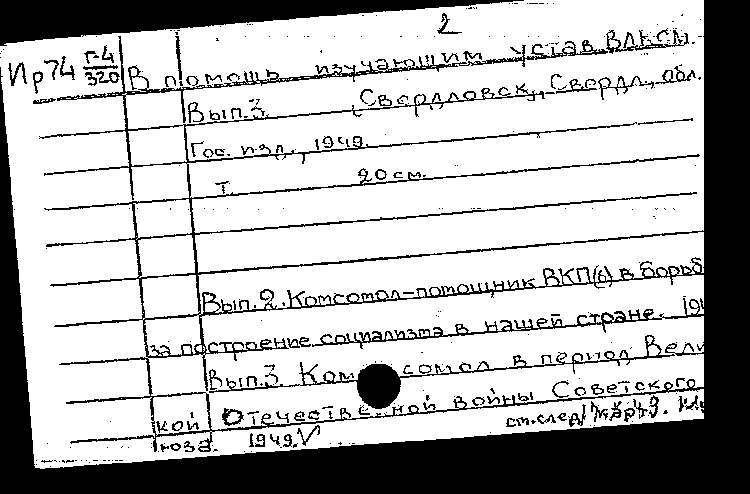 2
Ир74 Г-4/320 В помощь изучающим устав ВЛКСМ.
Вып.3. Свердловск, Свердл. обл.
Гос. изд., 1949.
т. 20 см.
Вып.2. Комсомол-помощник ВКП(б) в борьб
за построение социализма в нашей стране. 194
Вып.3. Ком сомол в период Вели
кой Отечественной войны Советского
юза. 1949. V см.след.